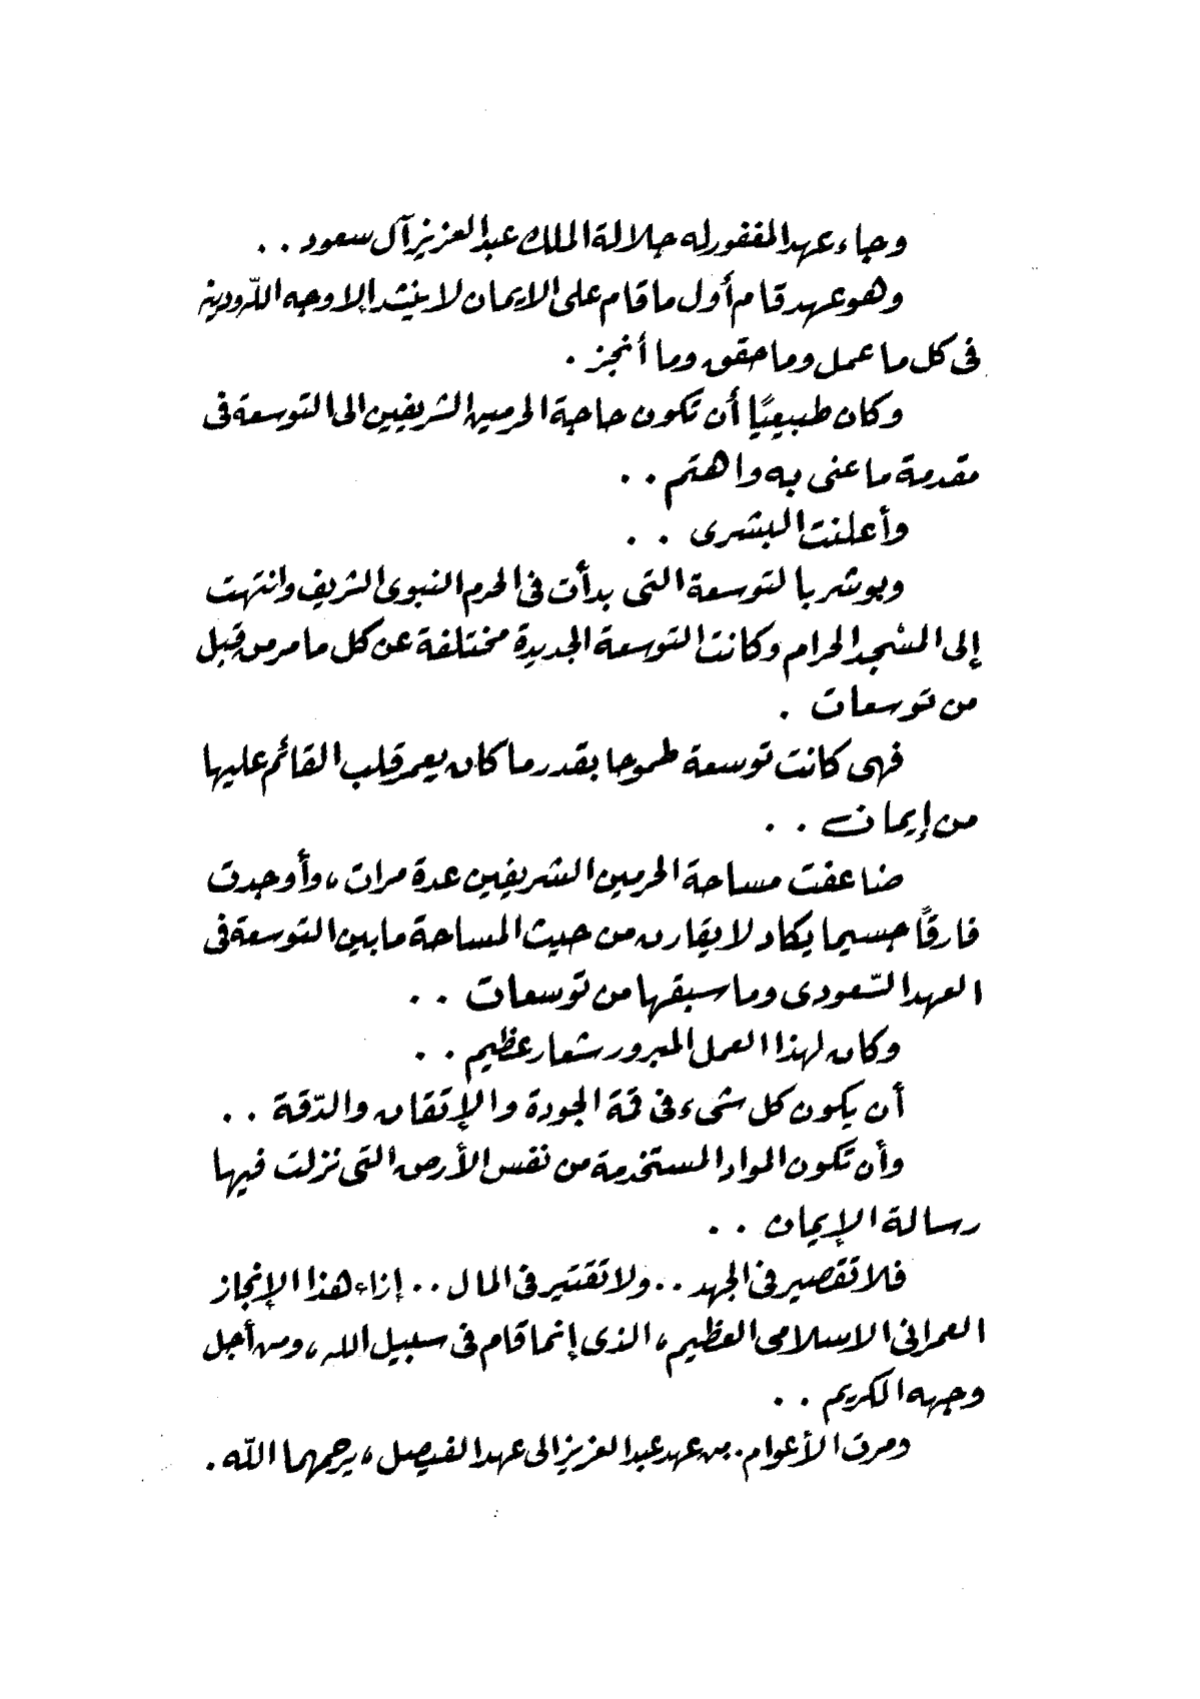 وجاء عهد المغفور له جلالة الملك عبد العزيز آل سعود . .
وهو عهد قام أول ما قام على الايمان لا ينشد إلا وجه اللّه ودينه
فى كل ما عمل وما حقق وما أنجز .
وكان طبيعيًا أن تكون حاجة الحرمين الشريفين الى التوسعة فى
مقدمة ما عنى به واهتم . .
وأعلنت البشرى . .
وبوشر بالتوسعة التى بدأت فى الحرم النبوى الشريف وانتهت
إلى المسْجد الحرام وكانت التوسعة الجديدة مختلفة عن كل ما مر من قبل
من توسعات .
فهى كانت توسعة طموحا بقدر ما كان يعمر قلب القائم عليها
من إيمان . .
ضاعفت مساحة الحرمين الشريفين عدة مرات ، وأوجدت
فارقًا جسيما يكاد لا يقارن من حيث المساحة ما بين التوسعة فى
العهد السّعودى وما سبقها من توسعات . .
وكان لهذا العمل المبرور شعار عظيم . .
أن يكون كل شىء فى قمة الجودة والإتقان والدّقة . .
وأن تكون المواد المستخدمة من نفس الأرض التى نزلت فيها
رسالة الإيمان . .
فلا تقصير فى الجهد . . ولا تقتير فى المال . . إزاء هذا الإنجاز
العمرانى الاسلامى العظيم ، الذى إنما قام فى سبيل الله ، ومن أجل
وجهه الكريم . .
ومرت الأعوام . من عهد عبد العزيز الى عهد الفيصل ، يرحمهما اللّه .